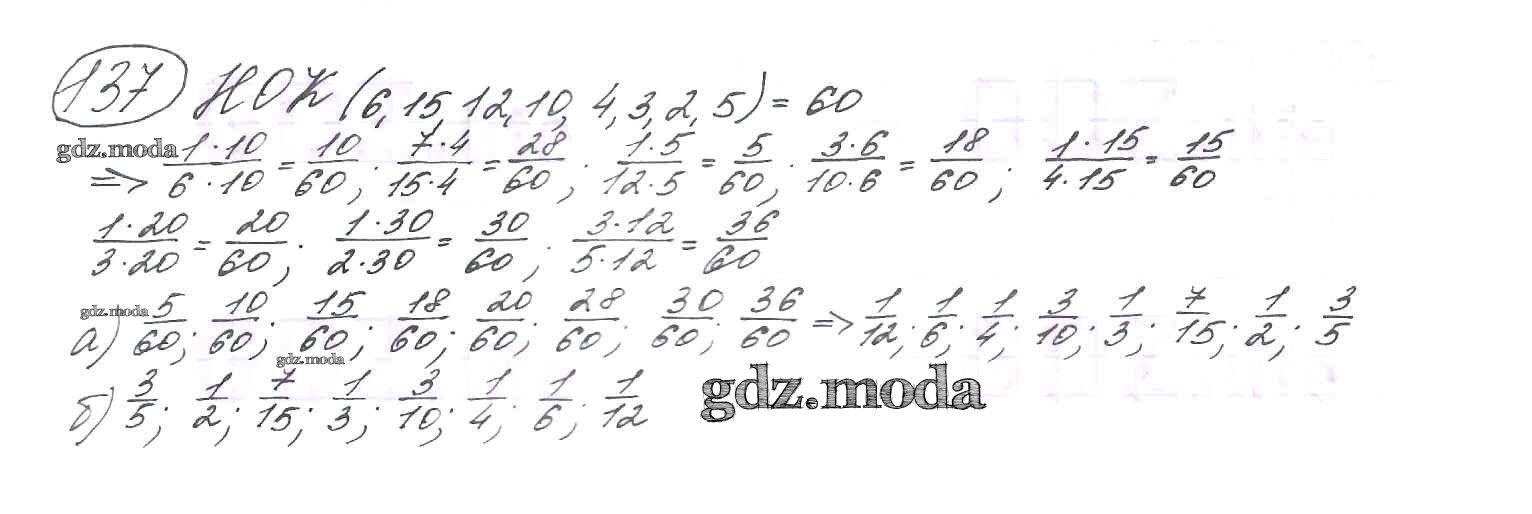 137 НОК (6, 15, 12, 10, 4, 3, 2, 5) = 60
gdz.moda
=> 1·10/6·10 = 10/60; 7·4/15·4 = 28/60; 1·5/12·5 = 5/60; 3·6/10·6 = 18/60; 1·15/4·15 = 15/60
1·20/3·20 = 20/60; 1·30/2·30 = 30/60; 3·12/5·12 = 36/60
gdz.moda
а) 5/60; 10/60; 15/60; 18/60; 20/60; 28/60; 30/60; 36/60 => 1/12; 1/6; 1/4; 3/10; 1/3; 7/15; 1/2; 3/5
gdz.moda
б) 3/5; 1/2; 7/15; 1/3; 3/10; 1/4; 1/6; 1/12
gdz.moda